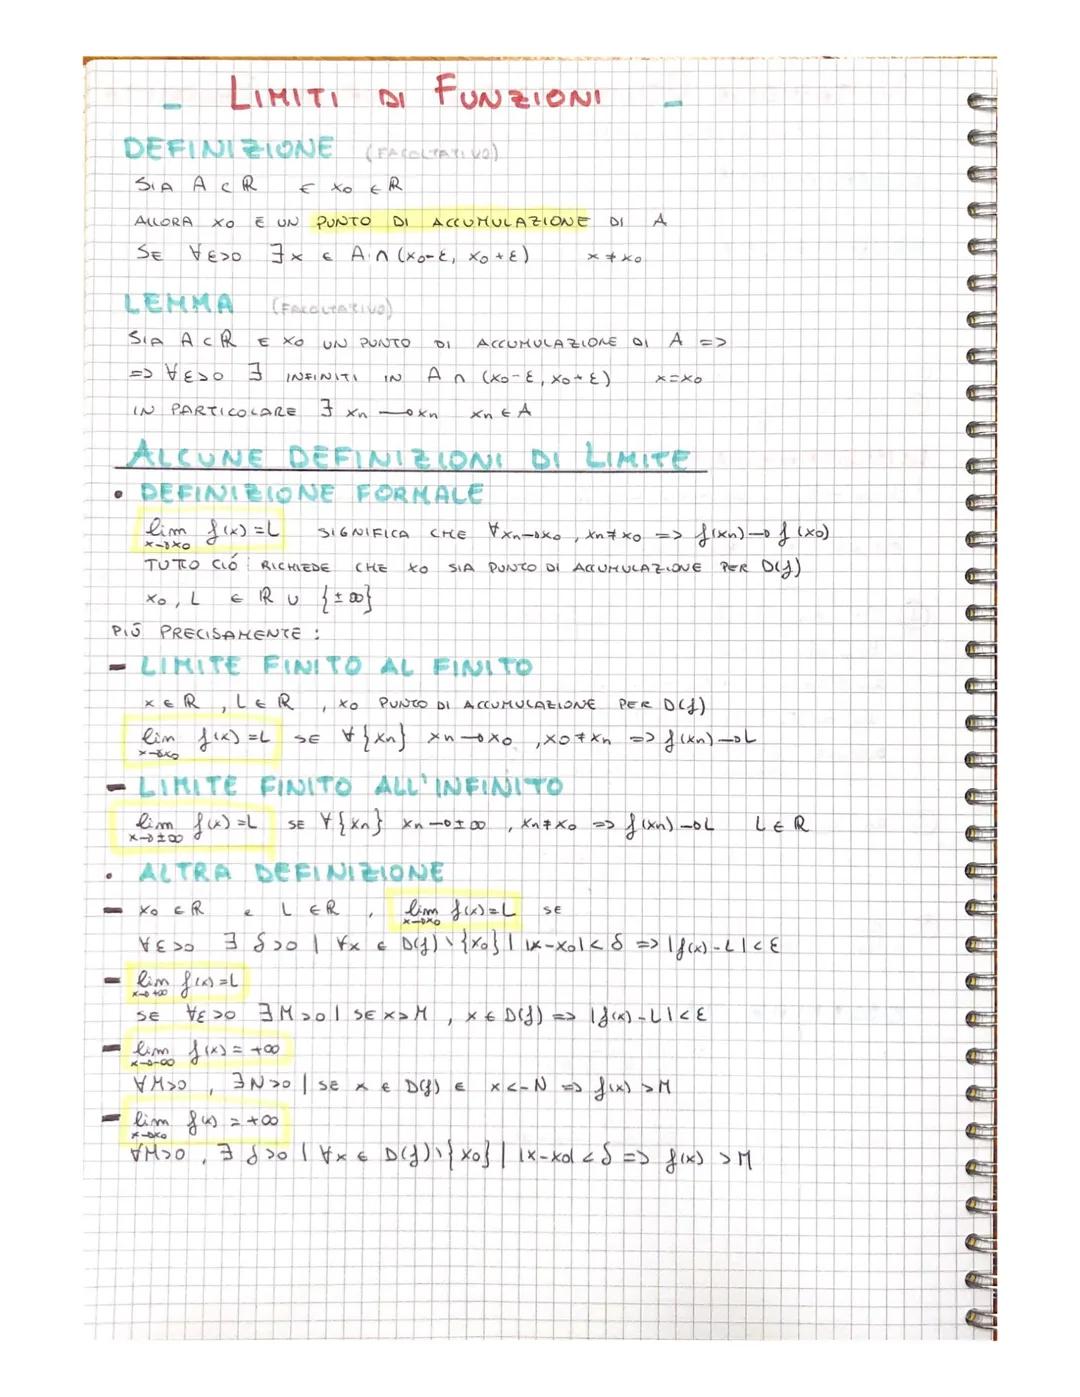 - LIMITI DI FUNZIONI -
DEFINIZIONE (FACOLTATIVO)
SIA A ⊂ ℝ E x₀ ∈ ℝ
ALLORA x₀ È UN PUNTO DI ACCUMULAZIONE DI A
SE ∀ε>0 ∃x ∈ A ∩ (x₀-ε, x₀+ε) x ≠ x₀
LEMMA (FACOLTATIVO)
SIA A ⊂ ℝ E x₀ UN PUNTO DI ACCUMULAZIONE DI A =>
=> ∀ε>0 ∃ INFINITI IN A ∩ (x₀-ε, x₀+ε) x=x₀
IN PARTICOLARE ∃ xn → xn xn ∈ A
ALCUNE DEFINIZIONI DI LIMITE
• DEFINIZIONE FORMALE
lim f(x)=L SIGNIFICA CHE ∀xn→x₀, xn≠x₀ => f(xn)→f(x₀)
x→x₀
TUTTO CIÓ RICHIEDE CHE x₀ SIA PUNTO DI ACCUMULAZIONE PER D(f)
x₀, L ∈ ℝ ∪ {±∞}
PIÚ PRECISAMENTE:
- LIMITE FINITO AL FINITO
x ∈ ℝ, L ∈ ℝ, x₀ PUNTO DI ACCUMULAZIONE PER D(f)
lim f(x)=L SE ∀{xn} xn→x₀, x₀≠xn => f(xn)→L
x→x₀
- LIMITE FINITO ALL'INFINITO
lim f(x)=L SE ∀{xn} xn→±∞, xn≠x₀ => f(xn)→L L ∈ ℝ
x→±∞
• ALTRA DEFINIZIONE
- x₀ ∈ ℝ e L ∈ ℝ, lim f(x)=L SE
x→x₀
∀ε>0 ∃δ>0 | ∀x ∈ D(f)\{x₀} | |x-x₀|<δ => |f(x)-L|<ε
- lim f(x)=L
x→+∞
SE ∀ε>0 ∃M>0 | SE x>M, x ∈ D(f) => |f(x)-L|<ε
- lim f(x)=+∞
x→-∞
∀M>0, ∃N>0 | SE x ∈ D(f) E x<-N => f(x)>M
- lim f(x)=+∞
x→x₀
∀M>0, ∃δ>0 | ∀x ∈ D(f)\{x₀} | |x-x₀|<δ => f(x)>M